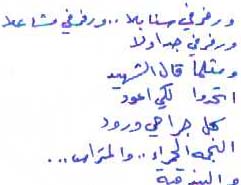 ورفرفي سنابلا .. ورفرفي مشاعلا
ورفرفي جداولا
ومثلما قال الشهيد
اتحدوا لكي اعود
كل جراحي ورود
النجمه الحمراء .. والمتراس ...
والبندقية